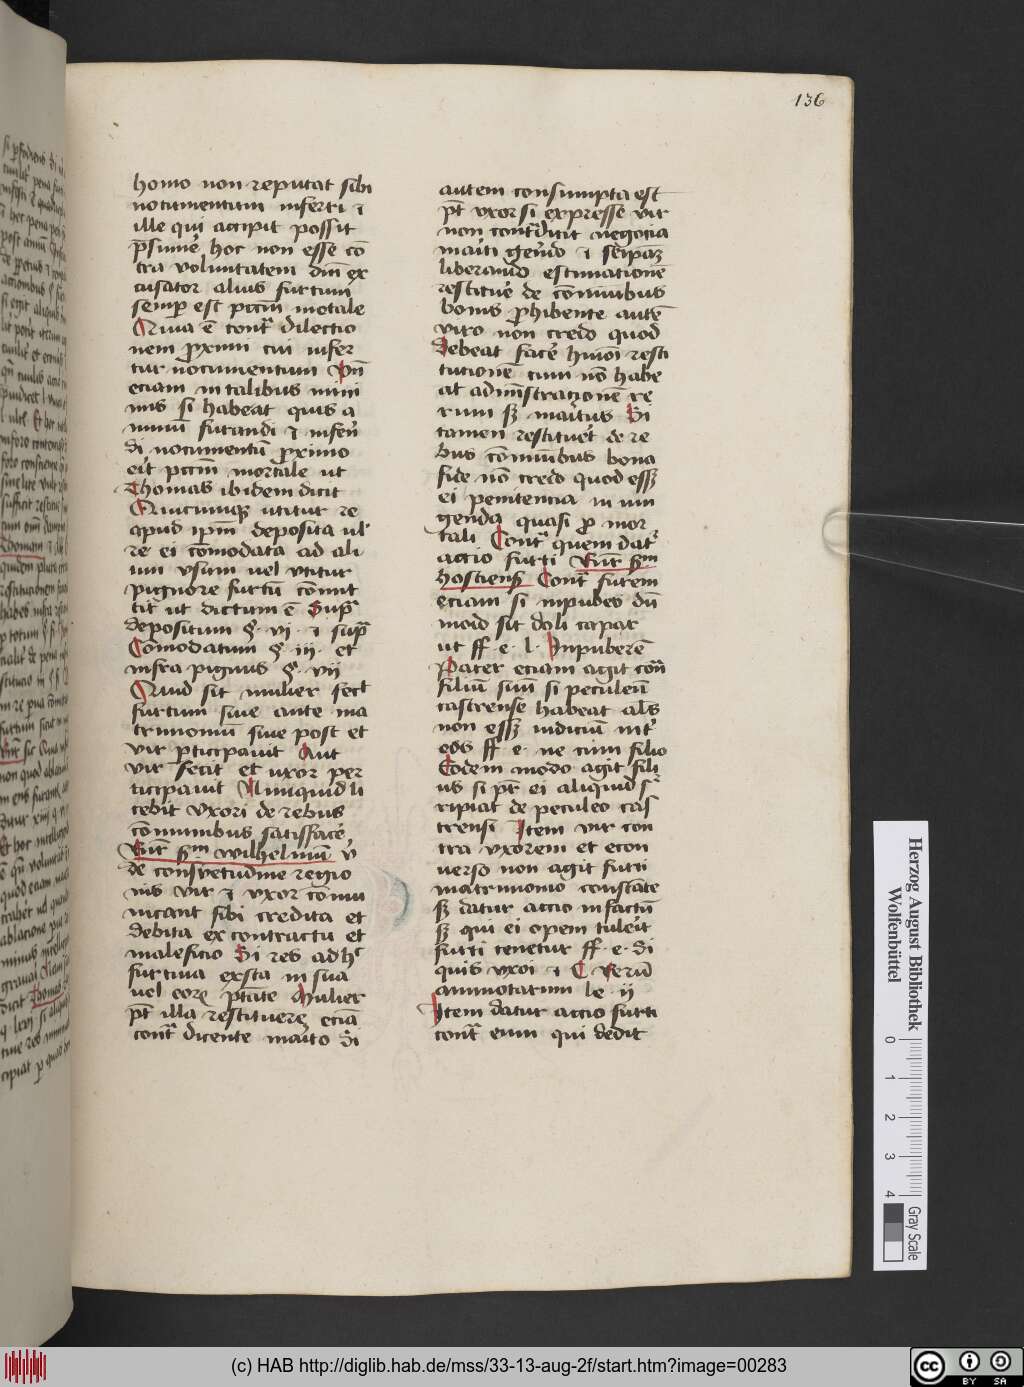 136
homo non reputat sibi
nocumentum inferri ⁊
ille qui accipit possit
p̄sume᷑ hoc non esse cō
tra voluntatem dn̄i ex
cusator alias furtum
semper est pctm̄ mortale
Quia ē contᷓ dilectio
nem proximi cui infer
tur nocumentum Vn̄
eciam in talibus mini
mis si habeat quis a
nimū furandi ⁊ infere᷑n
di nocumentū proximo
erit pctm̄ mortale ut
Thomas ibidem dicit
Quicumque utitur re
apud ip̄m deposita ul᷑
re ei cōmodata ad ali
um usum uel utitur
pignore furtū cōmit
tit ut dictum ē Supᷓ
depositum §. vj. ⁊ supᷓ
Comodatum §. iij. et
infra pignus §. vij
Quid sit mulier fecit
furtum siue ante ma
trimoniū siue post et
vir p̱ticipauit Aut
vir fecit et uxor per
ticipauit Nunquid li
cebit uxori de rebus
cōmunibus satisface᷑
Rn̄t sm̄ Wilhelmū ꝙ
de consuetudine regio
nis vir ⁊ uxor cōmu
nicant sibi credita et
debita ex contractu et
maleficio Si res adhᶜ
furtiua exsta in sua
uel eorꝫ ptāte Mulier
pt̄ illa restituere eciā
contᷓ dicente mar̄ito Si
autem consumpta est
pt̄ uxor si expresse vir
non contᷓdicit negocia
mar̄iti gere᷑ndo ⁊ seip̄aꝫ
liberando estimacionē
restitue᷑ de cōmunibus
bonis prohibente autē
viro non credo quod
debeat face᷑ hm̄oi resti
tucionē cum nō habe
at administracionē re
rum sꝫ maritus Si
tamen restitueᷣt de re
bus cōmunibus bona
fide nō credo quod esset
ei penitencia in iun
genda quasi pro mor
tali Contᷓ quem datᷣ
accio furti Rn̄t sm̄
hostiensꝫ Contᷓ furem
eciam si inpubes dū
modo sit doli capax
ut ff. e. l. Inpuberē
Pater eciam agit contᷓ
filiū suū si peculeū
castrense habeat al̄s
non esset iudiciū intᷣ
eos ff. e. ne cum filio
Eodem modo agit fili
us si pr̄ ei aliquid sᷣ
ripiat de peculeo cas
trensi Item vir con
tra uxorem et econ
uerso non agit furti
matrimonio constāte
sꝫ datur accio in factū
sꝫ qui ei opem tuleᷣit
furti tenetur ff. e. Si
quis uxori ⁊ C Rerū
ammotarum le. ij
Item datur accio furti
contᷓ eum qui dedit
Herzog August Bibliothek
Wolfenbüttel
0 1 2 3 4
Gray Scale
(c) HAB http://diglib.hab.de/mss/33-13-aug-2f/start.htm?image=00283
cc BY SA